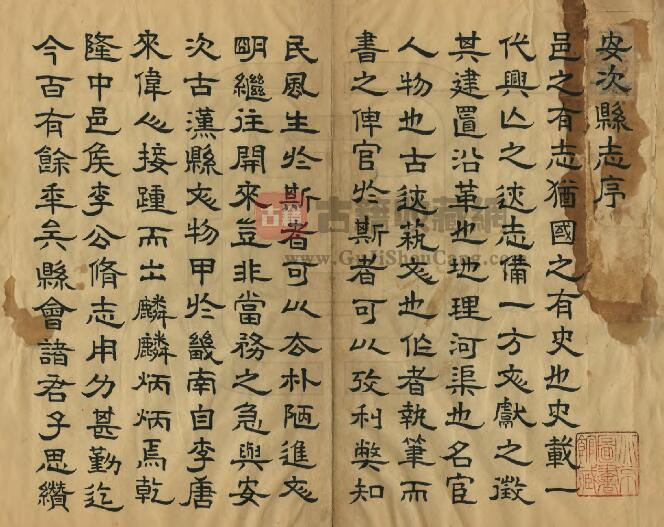 安次縣志序
邑之有志猶國之有史也史載一
代興亾之迹志備一方文獻之徵
其建置沿革也地理河渠也名宦
人物也古迹蓺文也作者執筆而
書之俾官於斯者可以攷利弊知
民風生於斯者可以去朴陋進文
明繼往開來豈非當務之急與安
次古漢縣文物甲於畿南自李唐
來偉人接踵而出麟麟炳炳焉乾
隆中邑矦李公脩志用力甚勤迄
今百有餘年矣縣會諸君子思纘
古籍收藏網
www.GuJiShouCang.com